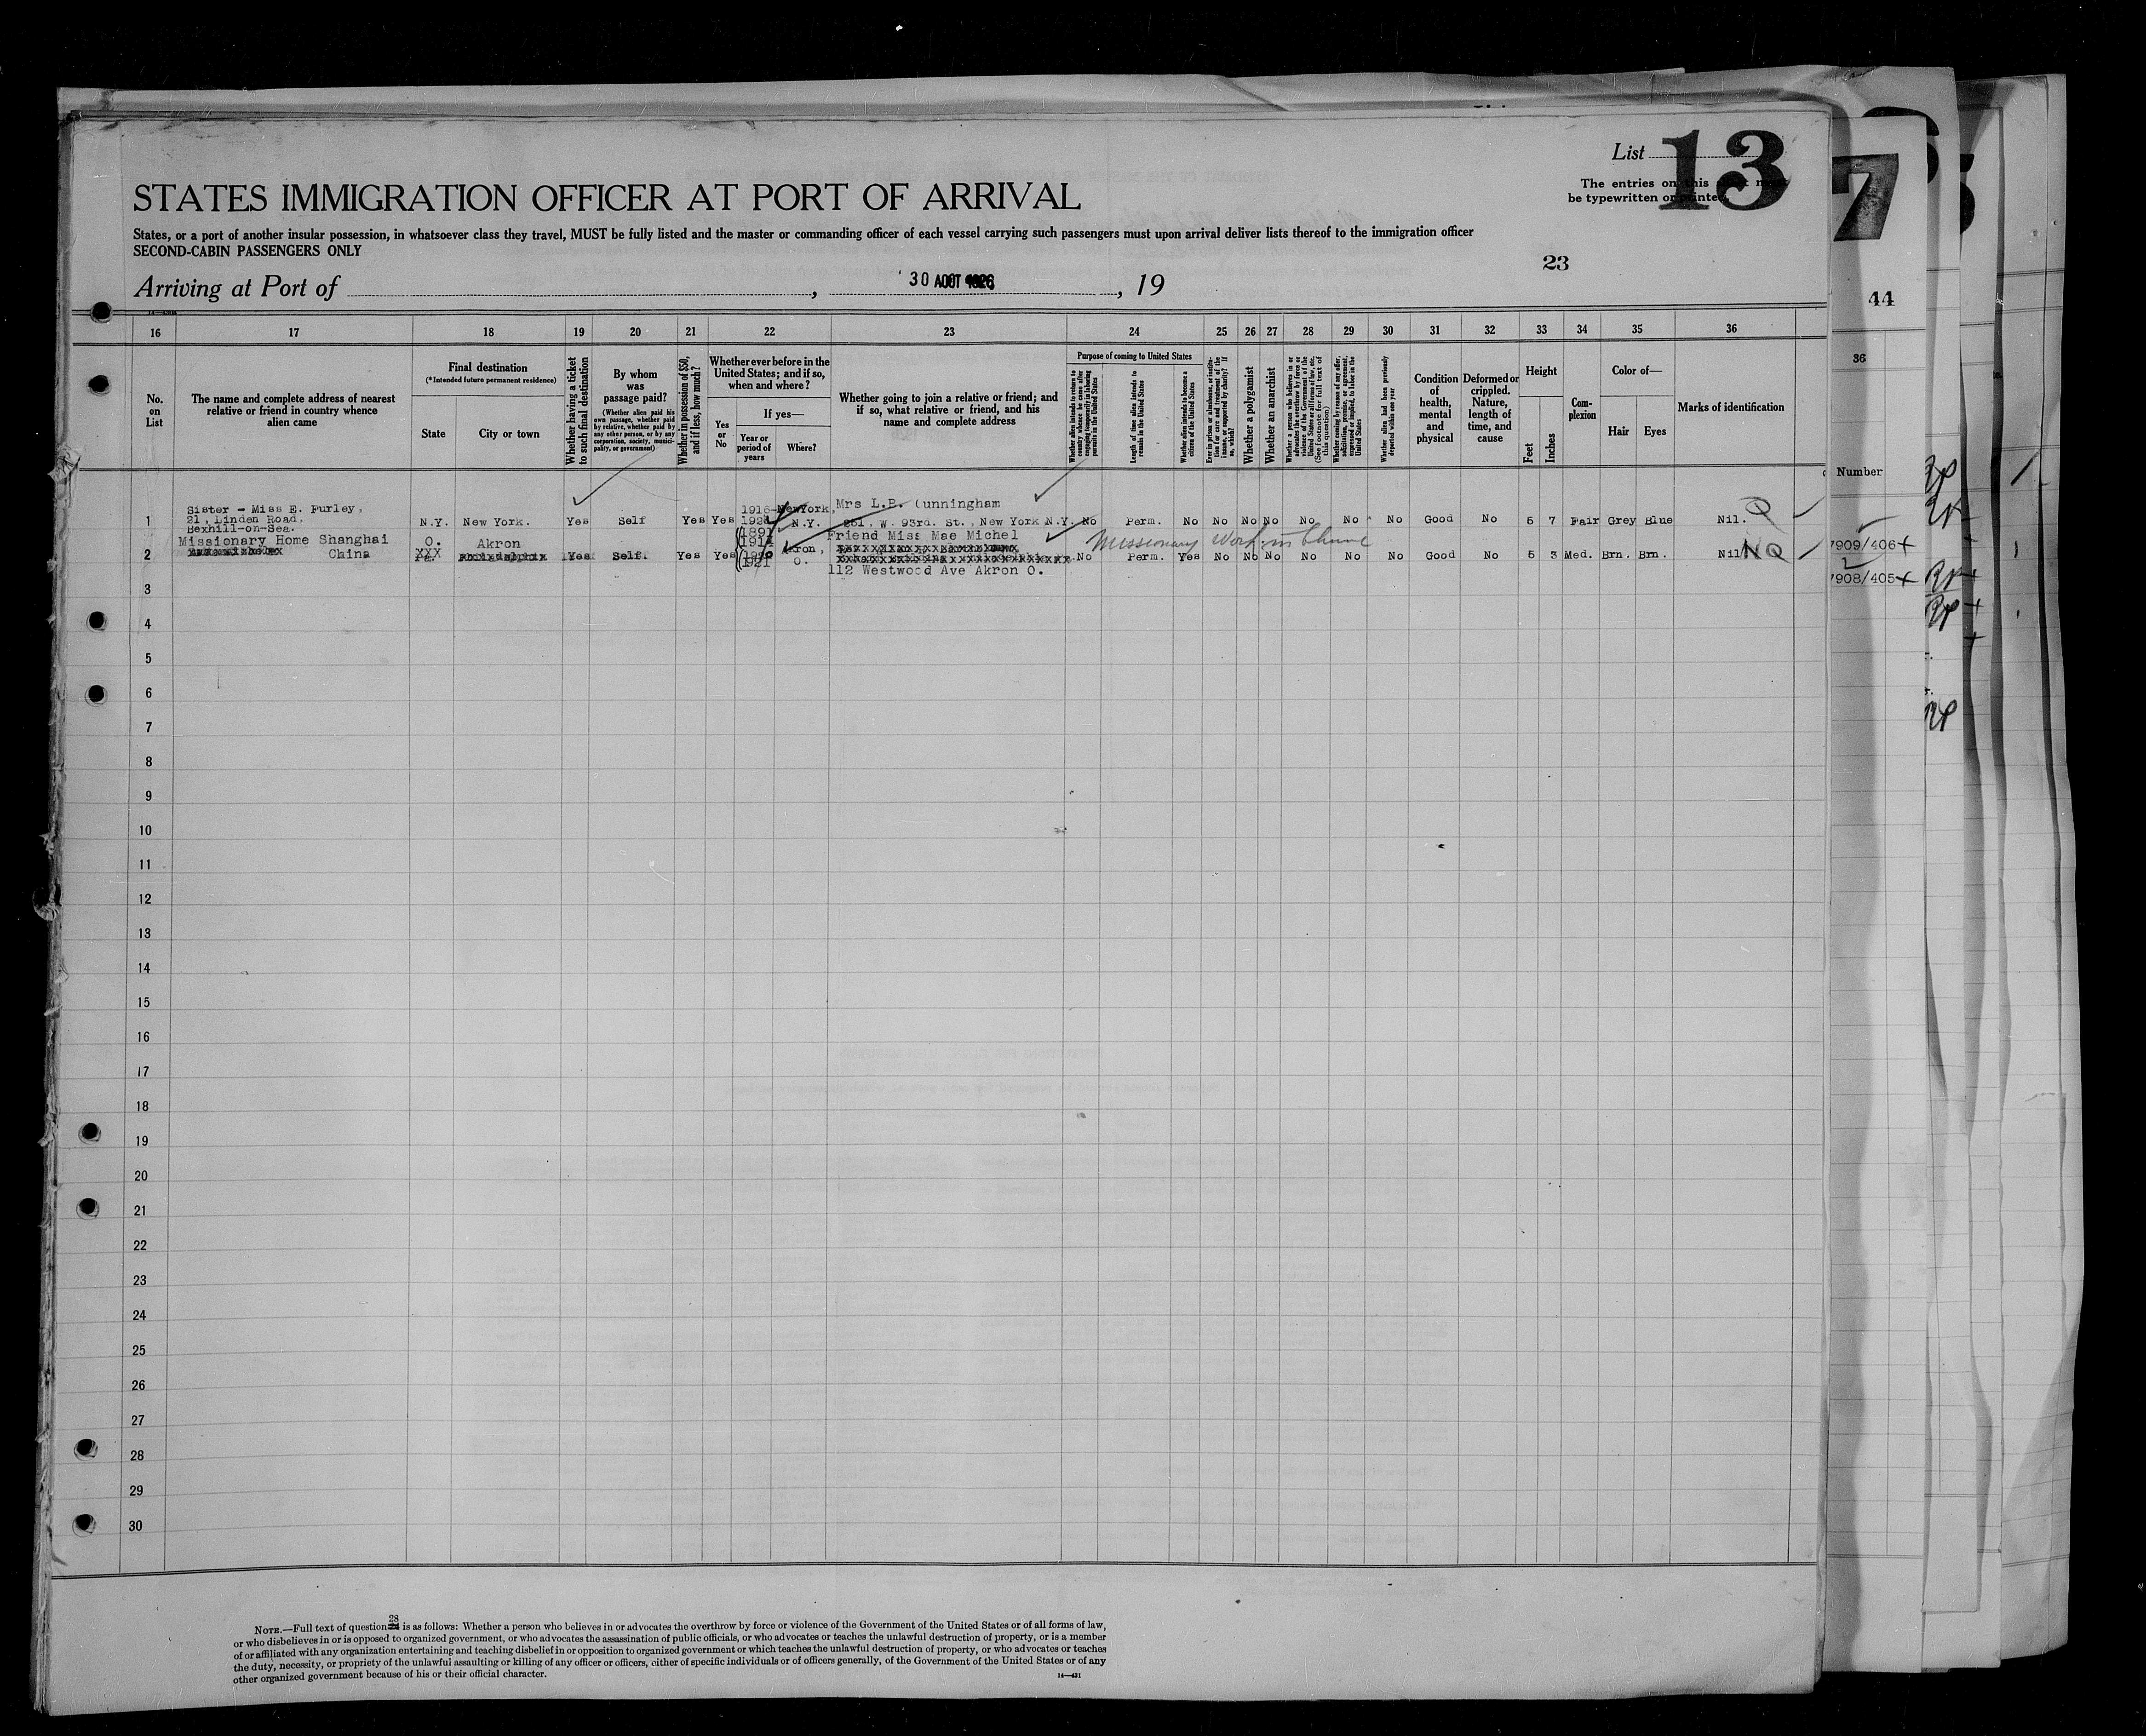 List 13
The entries on this
be typewritten or printed.
STATES IMMIGRATION OFFICER AT PORT OF ARRIVAL
States, or a port of another insular possession, in whatsoever class they travel, MUST be fully listed and the master or commanding officer of each vessel carrying such passengers must upon arrival deliver lists thereof to the immigration officer
SECOND-CABIN PASSENGERS ONLY
23
Arriving at Port of , 30 AOUT 1926 , 19
16 17 18 19 20 21 22 23 24 25 26 27 28 29 30 31 32 33 34 35 36
No. on List
The name and complete address of nearest relative or friend in country whence alien came
Final destination
(*Intended future permanent residence)
State
City or town
Whether having a ticket to such final destination
By whom was passage paid?
(Whether alien paid his own passage, whether paid by relative, whether paid by any other person, or by any corporation, society, municipality, or government)
Whether in possession of $50, and if less, how much?
Whether ever before in the United States; and if so, when and where?
Yes or No
If yes—
Year or period of years
Where?
Whether going to join a relative or friend; and if so, what relative or friend, and his name and complete address
Purpose of coming to United States
Whether alien intends to return to country whence he came after engaging temporarily in laboring pursuits in the United States
Length of time alien intends to remain in the United States
Whether alien intends to become a citizen of the United States
Ever in prison or almshouse, or institution for care and treatment of the insane, or supported by charity? If so, which?
Whether a polygamist
Whether an anarchist
Whether a person who believes in or advocates the overthrow by force or violence of the Government of the United States or all forms of law, etc. (See footnote for full text of this question)
Whether coming by reason of any offer, solicitation, promise, or agreement, expressed or implied, to labor in the United States
Whether alien had been previously deported within one year
Condition of health, mental and physical
Deformed or crippled. Nature, length of time, and cause
Height
Feet
Inches
Complexion
Color of—
Hair
Eyes
Marks of identification
1 Sister - Miss E. Purley, 21, Linden Road, Bexhill-on-Sea. N.Y. New York. Yes Self Yes Yes 1916 New York, N.Y. Mrs L.B. Cunningham 251, W. 93rd. St., New York N.Y. No Perm. No No No No No No No Good No 5 7 Fair Grey Blue Nil. Q
2 Missionary Home Shanghai China O. Akron Yes Self. Yes Yes 1921 Akron, O. Friend Miss Mae Michel 112 Westwood Ave Akron O. No Perm. Yes No No No No No No Good No 5 3 Med. Brn. Brn. Nil NQ
Missionary Work in China
3
4
5
6
7
8
9
10
11
12
13
14
15
16
17
18
19
20
21
22
23
24
25
26
27
28
29
30
NOTE.—Full text of question 28 is as follows: Whether a person who believes in or advocates the overthrow by force or violence of the Government of the United States or of all forms of law,
or who disbelieves in or is opposed to organized government, or who advocates the assassination of public officials, or who advocates or teaches the unlawful destruction of property, or is a member
of or affiliated with any organization entertaining and teaching disbelief in or opposition to organized government or which teaches the unlawful destruction of property, or who advocates or teaches
the duty, necessity, or propriety of the unlawful assaulting or killing of any officer or officers, either of specific individuals or of officers generally, of the Government of the United States or of any
other organized government because of his or their official character.
14—431
7
44
36
Number
7909/406
7908/405